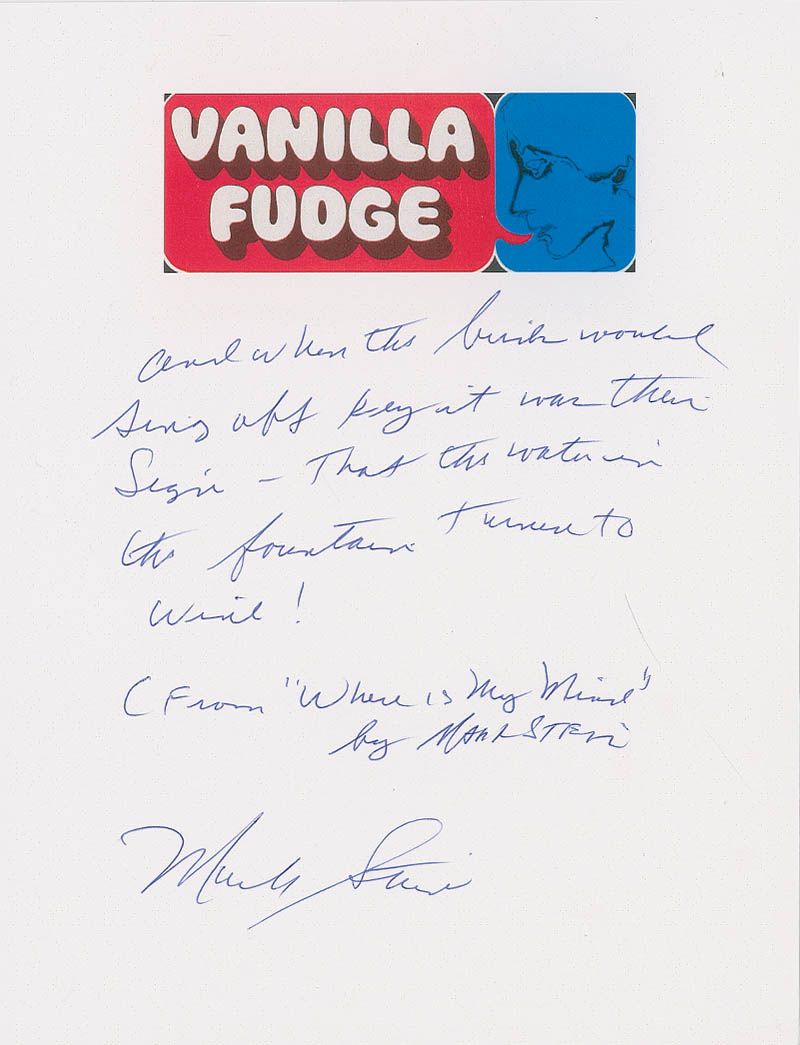 VANILLA
FUDGE
and when the birds would
sing off key it was their
Sign – That the water in
the fountain Turned to
wine!
(From "Where is My Mind"
by MARK STEIN
Mark Stein